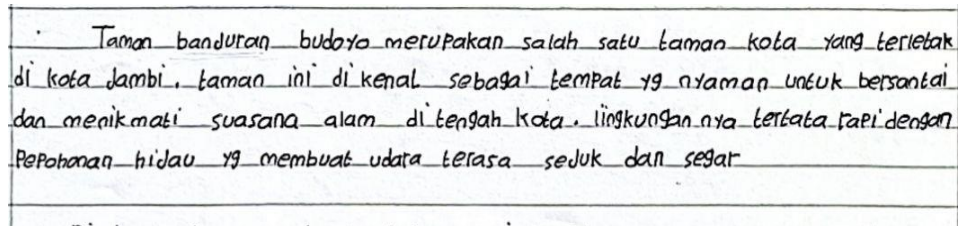 Taman banduran budoyo merupakan salah satu taman kota yang terletak
di kota Jambi, taman ini di kenal sebagai tempat yg nyaman untuk bersantai
dan menikmati suasana alam di tengah kota. lingkungan nya tertata rapi dengan
Pepohonan hijau yg membuat udara terasa sejuk dan segar